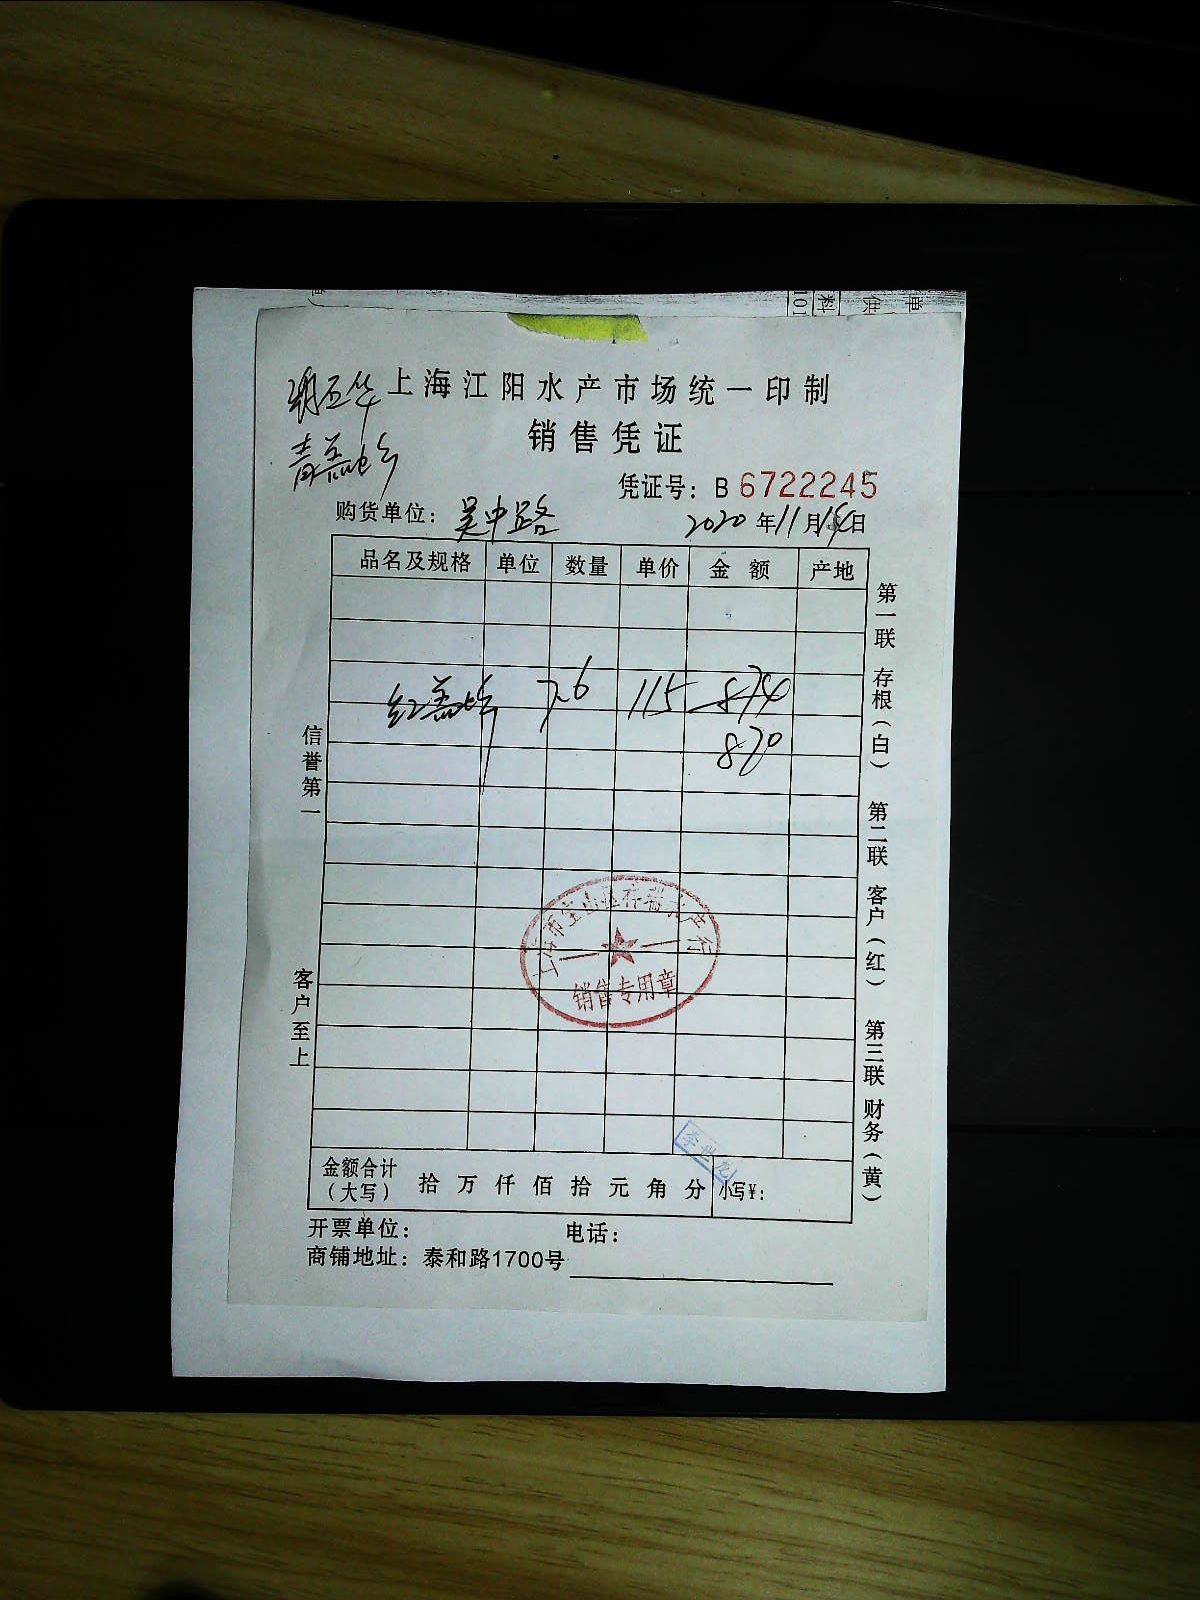 上海江阳水产市场统一印制
销售凭证
凭证号：B 6722245
购货单位：吴中路
2020年11月14日
品名及规格 单位 数量 单价 金额 产地
7.6 115 874
870
信誉第一
客户至上
第一联 存根（白） 第二联 客户（红） 第三联 财务（黄）
销售专用章
李世龙
金额合计（大写） 拾万仟佰拾元角分 小写¥：
开票单位： 电话：
商铺地址：泰和路1700号